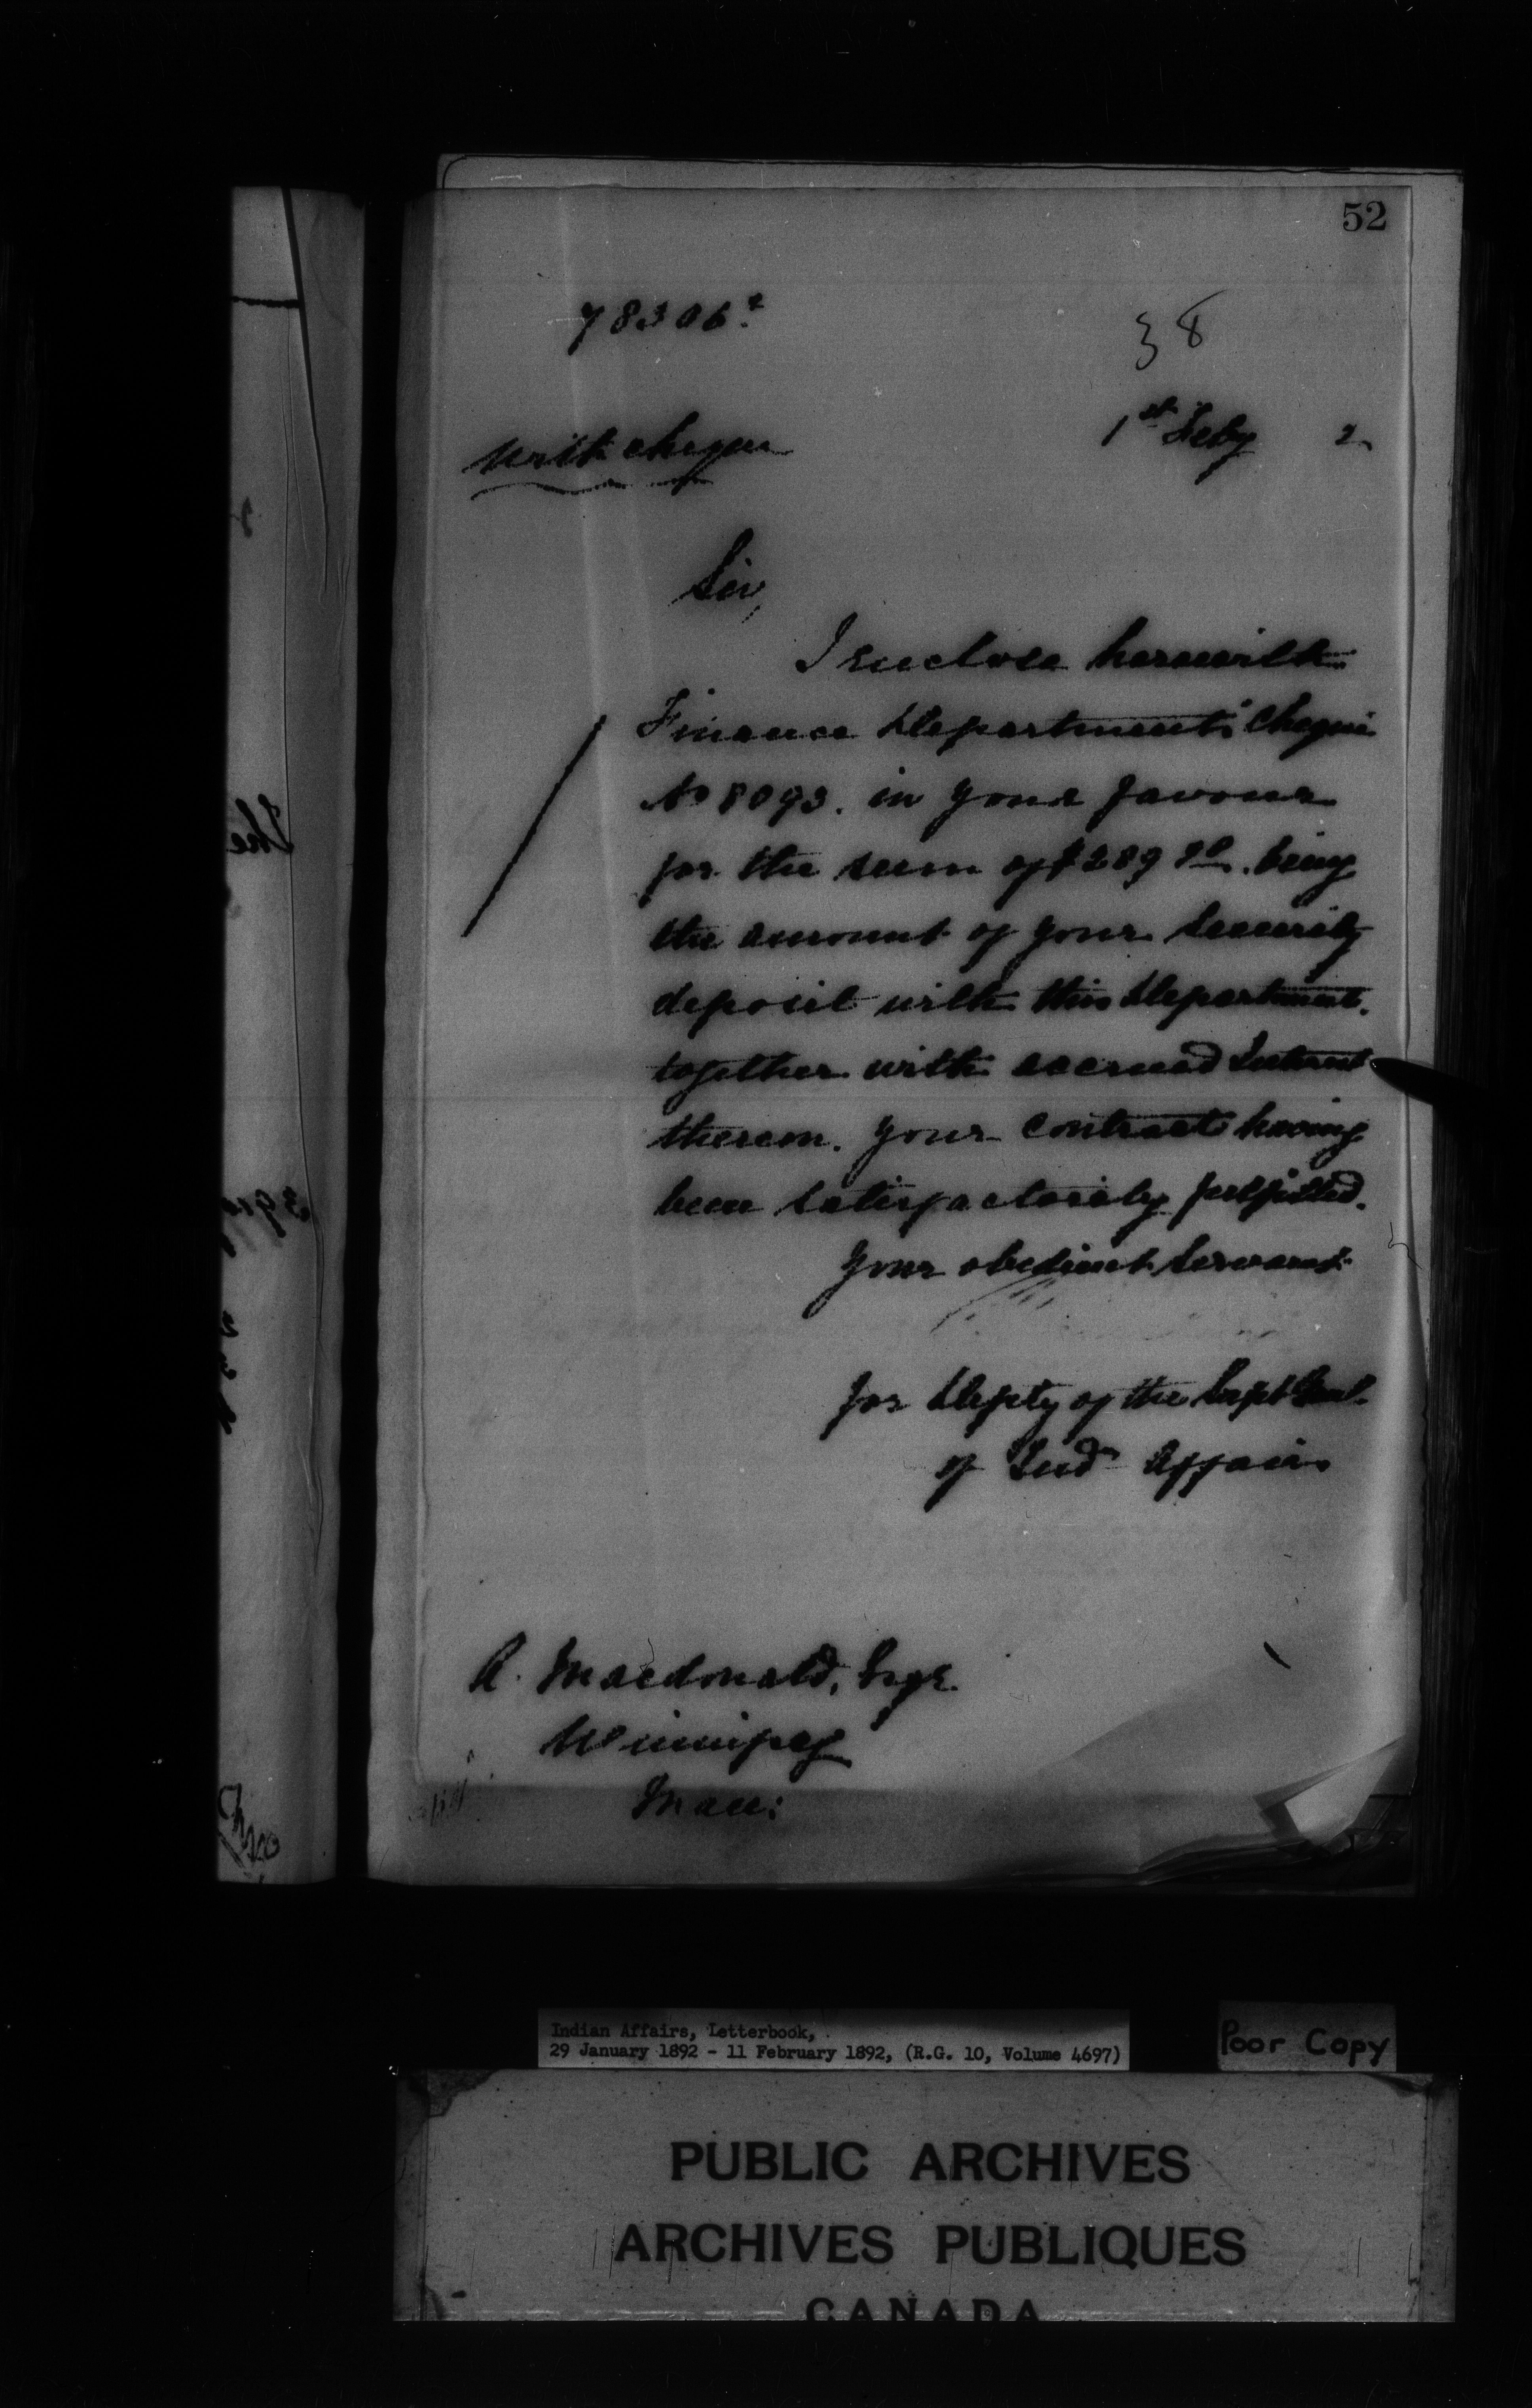 52
78306²
38
with cheque
1st Feby 2
Sir,
I enclose herewith
Finance Department Cheque
No 8093. in your favour
for the sum of $289 being
the amount of your Security
deposit with this Department.
together with accrued Interest
thereon. Your Contract having
been satisfactorily fulfilled.
Your obedient Servant
for Depty of the Supt Genl.
of Ind Affairs
A. Macdonald, Esqr.
Winnipeg
Man:
Indian Affairs, Letterbook,
29 January 1892 - 11 February 1892, (R.G. 10, Volume 4697)
Poor Copy
PUBLIC ARCHIVES
ARCHIVES PUBLIQUES
CANADA